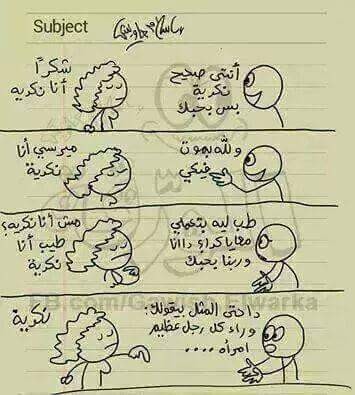 Subject
أنتى صحيح
نكرية
بس بحبك
شكرًا
أنا نكريه
ولله بموت
فيكي
ميرسي أنا
نكرية
طب ليه بتعملي
معايا كدا وداانا
وربنا بحبك
مش أنا نكريه؟
طيب أنا
نكرية
داحتى المثل بيقولك:
وراء كل رجل عظيم
امرأه ....
نكرية
FB.com/Gawish.Elwarka